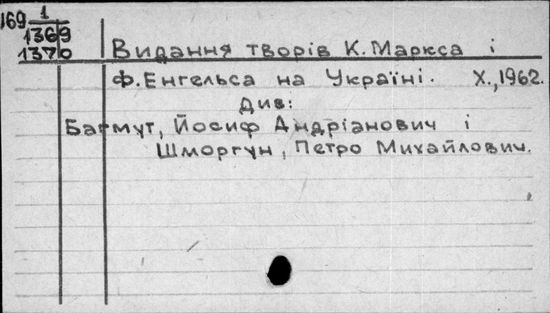 169 1
1369
1370
Видання творів К. Маркса і
Ф. Енгельса на Україні. Х., 1962.
Див:
Багмут, Йосиф Андріанович і
Шморгун, Петро Михайлович.